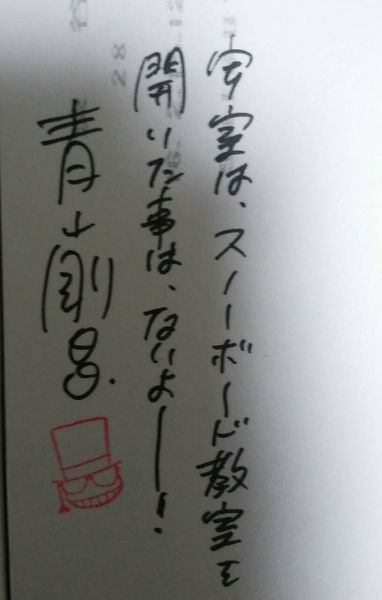 室は、スノーボード教室を
開いた事は、ないよー!
青山剛昌.
28